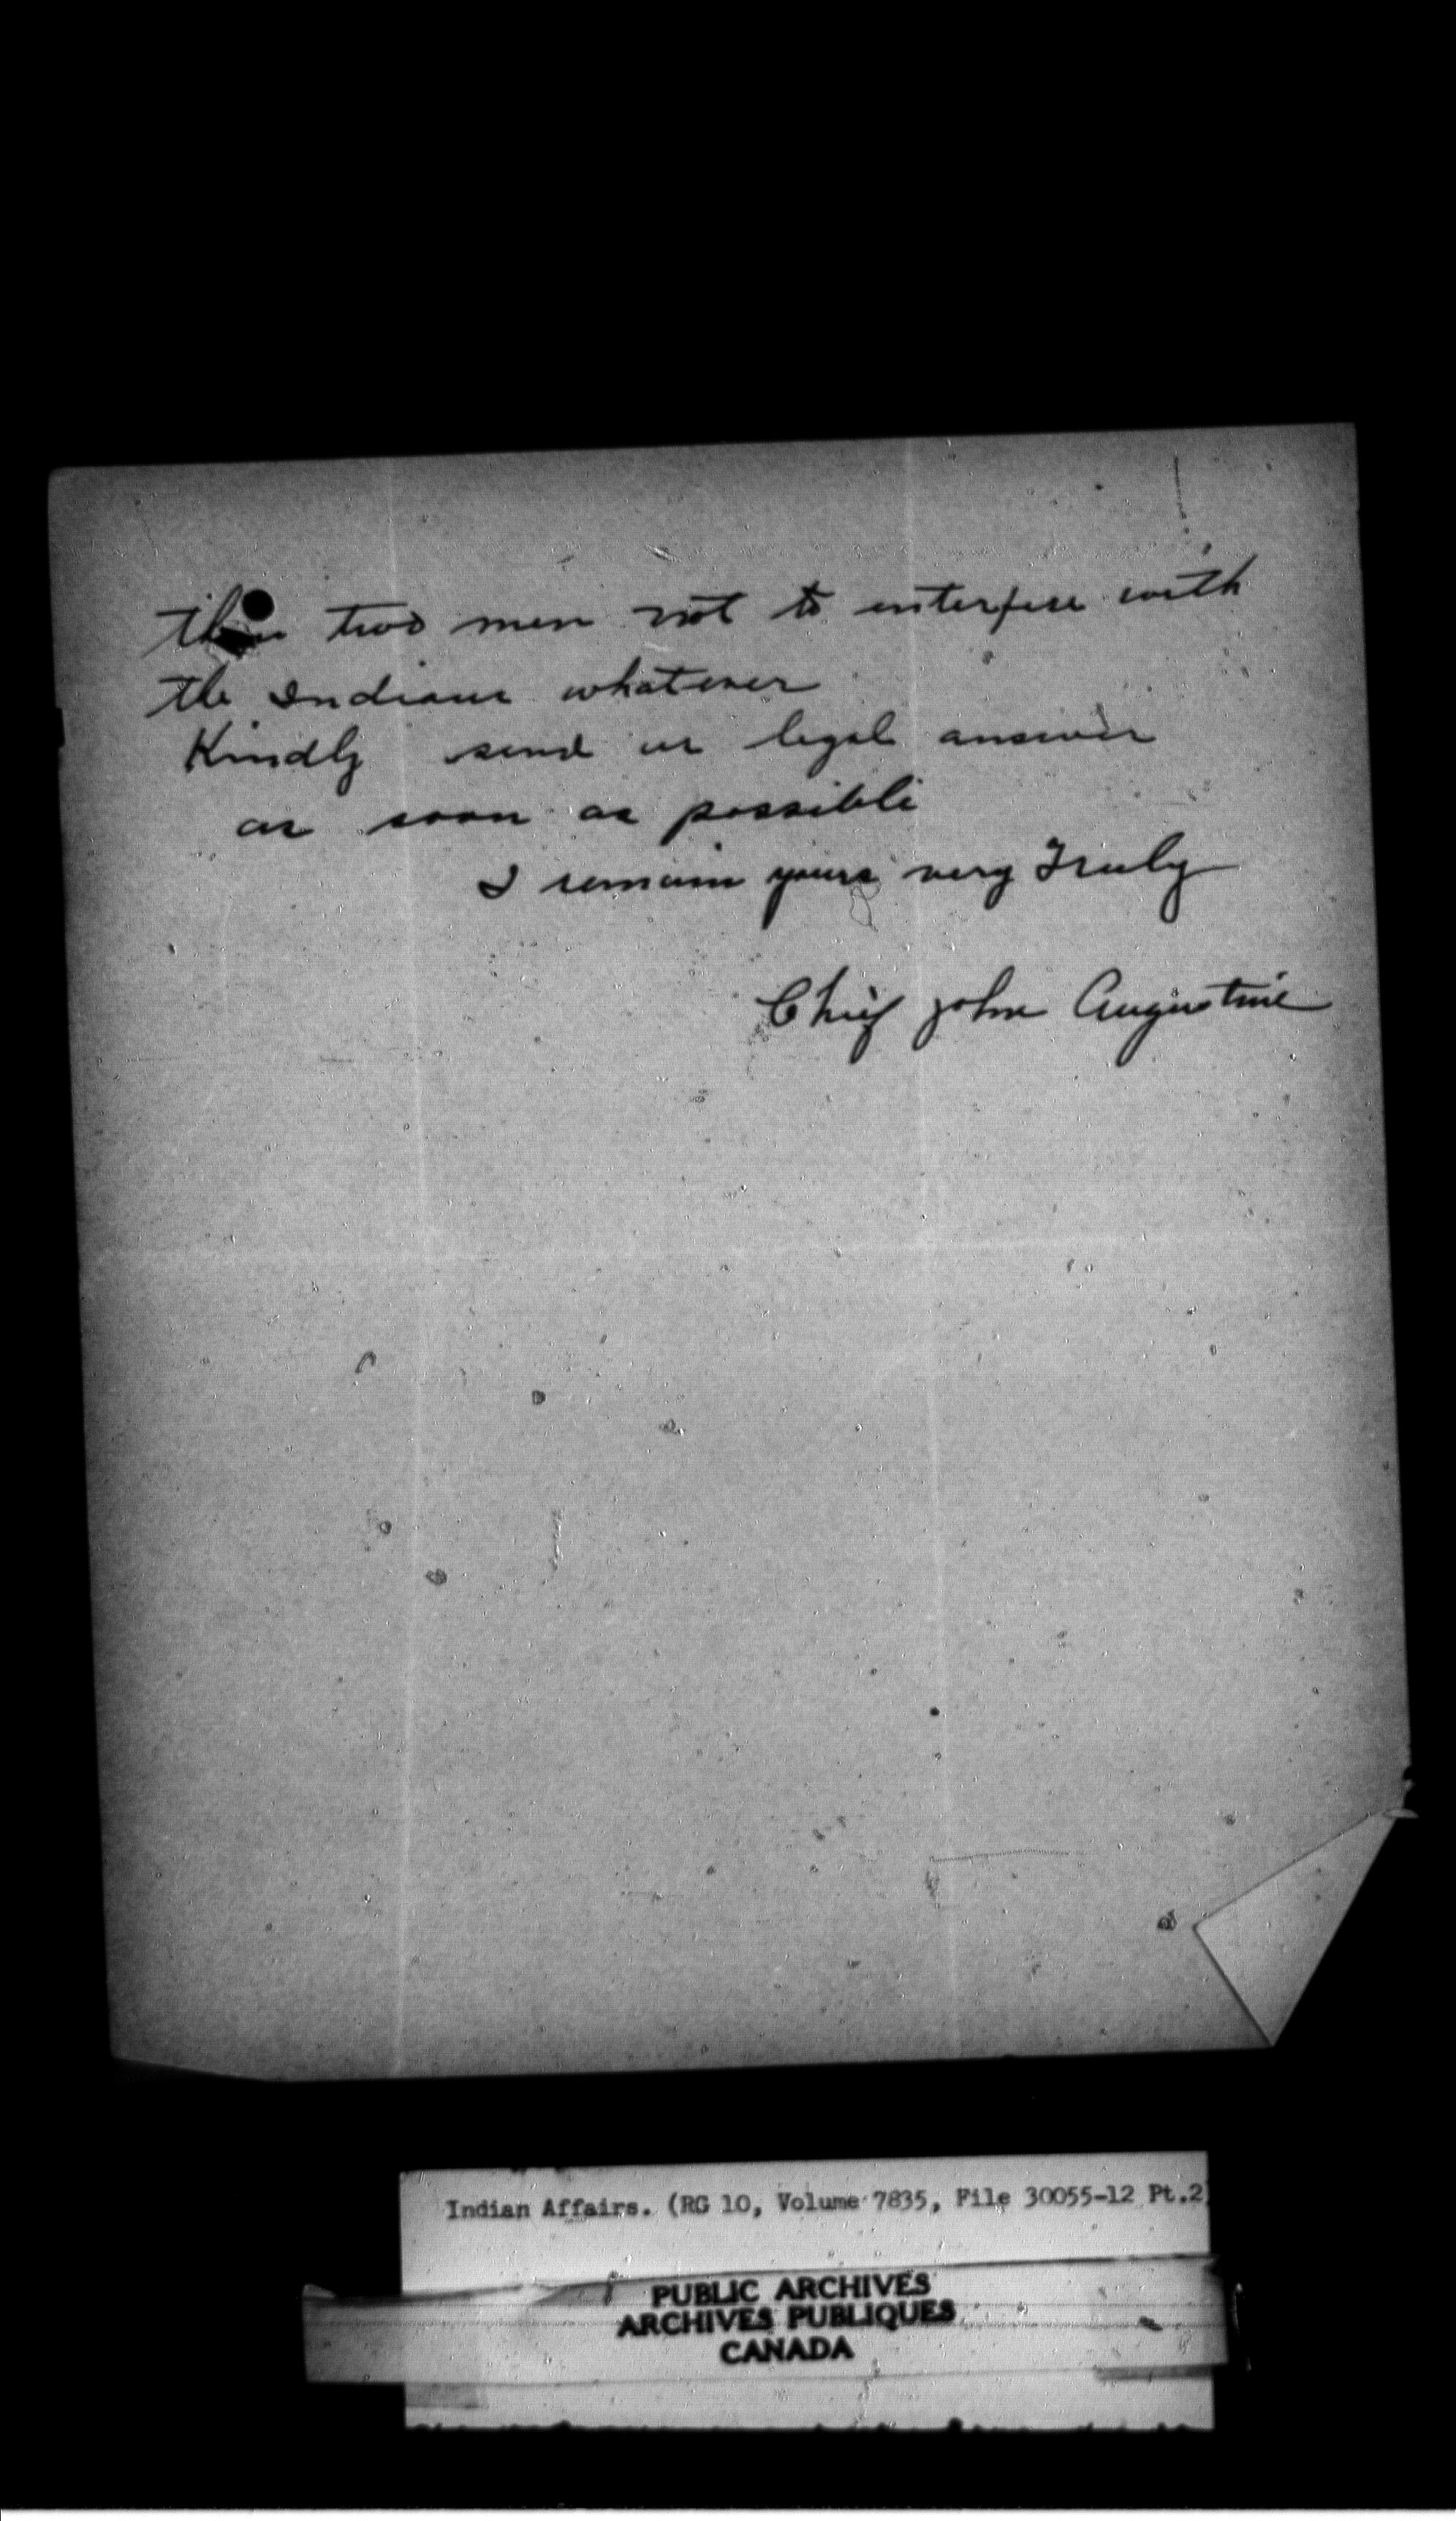 two men not to interfere with
the Indians whatever
Kindly send us legal answer
as soon as possible
I remain yours very Truly
Chief John Augustine
Indian Affairs. (RG 10, Volume 7835, File 30055-12 Pt.2
PUBLIC ARCHIVES
ARCHIVES PUBLIQUES
CANADA